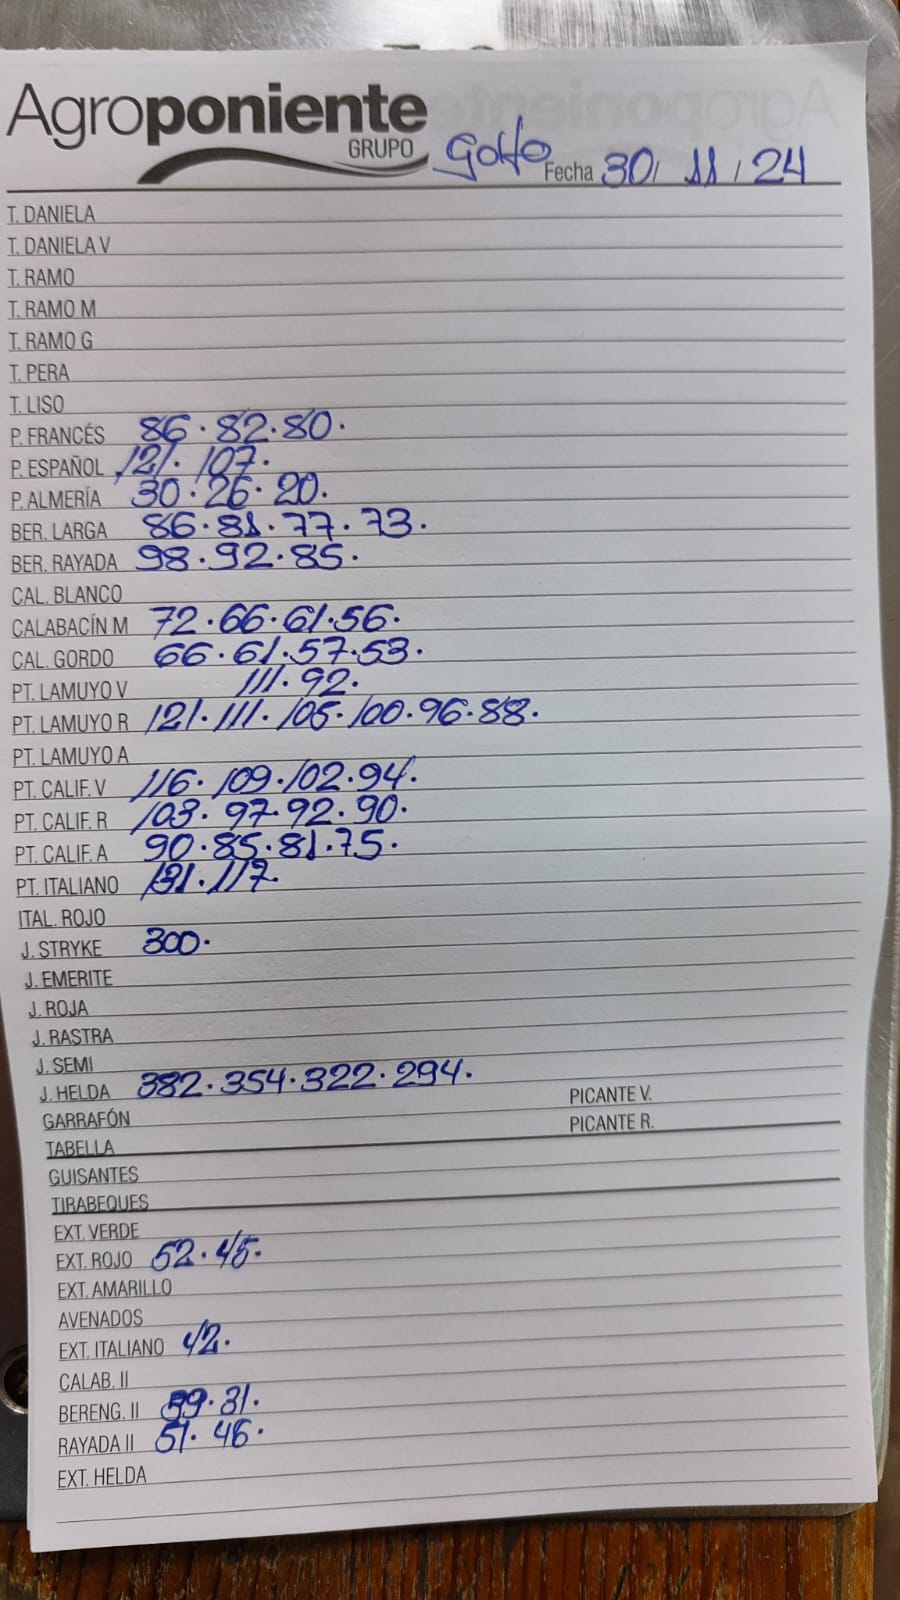 Agroponiente
GRUPO
Golfo Fecha 30/ 11 / 24
T. DANIELA
T. DANIELA V
T. RAMO
T. RAMO M
T. RAMO G
T. PERA
T. LISO
P. FRANCÉS 86 · 82 · 80 ·
P. ESPAÑOL 121 · 107 ·
P. ALMERÍA 30 · 26 · 20 ·
BER. LARGA 86 · 81 · 77 · 73 ·
BER. RAYADA 98 · 92 · 85 ·
CAL. BLANCO
CALABACÍN M 72 · 66 · 61 · 56 ·
CAL. GORDO 66 · 61 · 57 · 53 ·
PT. LAMUYO V 111 · 92 ·
PT. LAMUYO R 121 · 111 · 105 · 100 · 96 · 88 ·
PT. LAMUYO A
PT. CALIF. V 116 · 109 · 102 · 94 ·
PT. CALIF. R 103 · 97 · 92 · 90 ·
PT. CALIF. A 90 · 85 · 81 · 75 ·
PT. ITALIANO 131 · 117 ·
ITAL. ROJO
J. STRYKE 300 ·
J. EMERITE
J. ROJA
J. RASTRA
J. SEMI
J. HELDA 382 · 354 · 322 · 294 ·
PICANTE V.
GARRAFÓN
PICANTE R.
TABELLA
GUISANTES
TIRABEQUES
EXT. VERDE
EXT. ROJO 52 · 45 ·
EXT. AMARILLO
AVENADOS
EXT. ITALIANO 42 ·
CALAB. II
BERENG. II 39 · 31 ·
RAYADA II 51 · 46 ·
EXT. HELDA